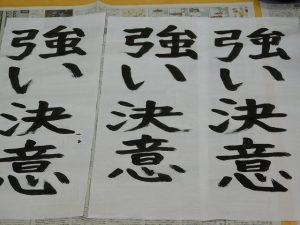 強い決意
強い決意
強い決意